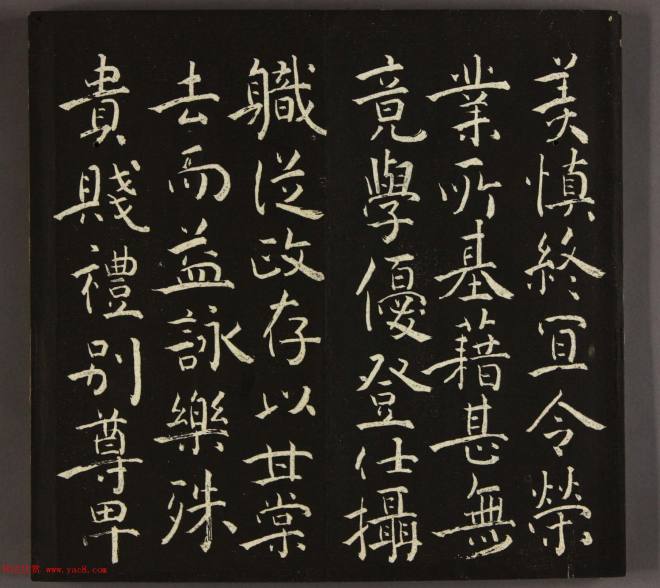 美慎終冝令榮
業所基藉甚無
竟學優登仕攝
軄從政存以甘棠
去而益詠樂殊
貴賤禮别尊卑
www.yac8.com